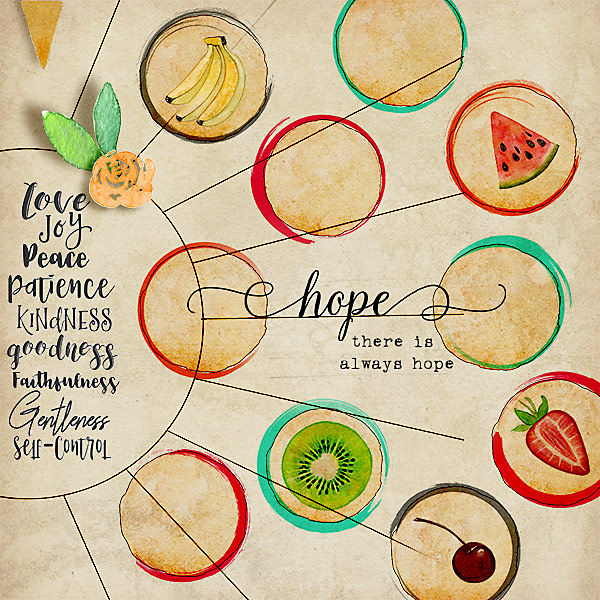 Love
Joy
Peace
Patience
Kindness
goodness
Faithfulness
Gentleness
Self-Control
hope
there is
always hope